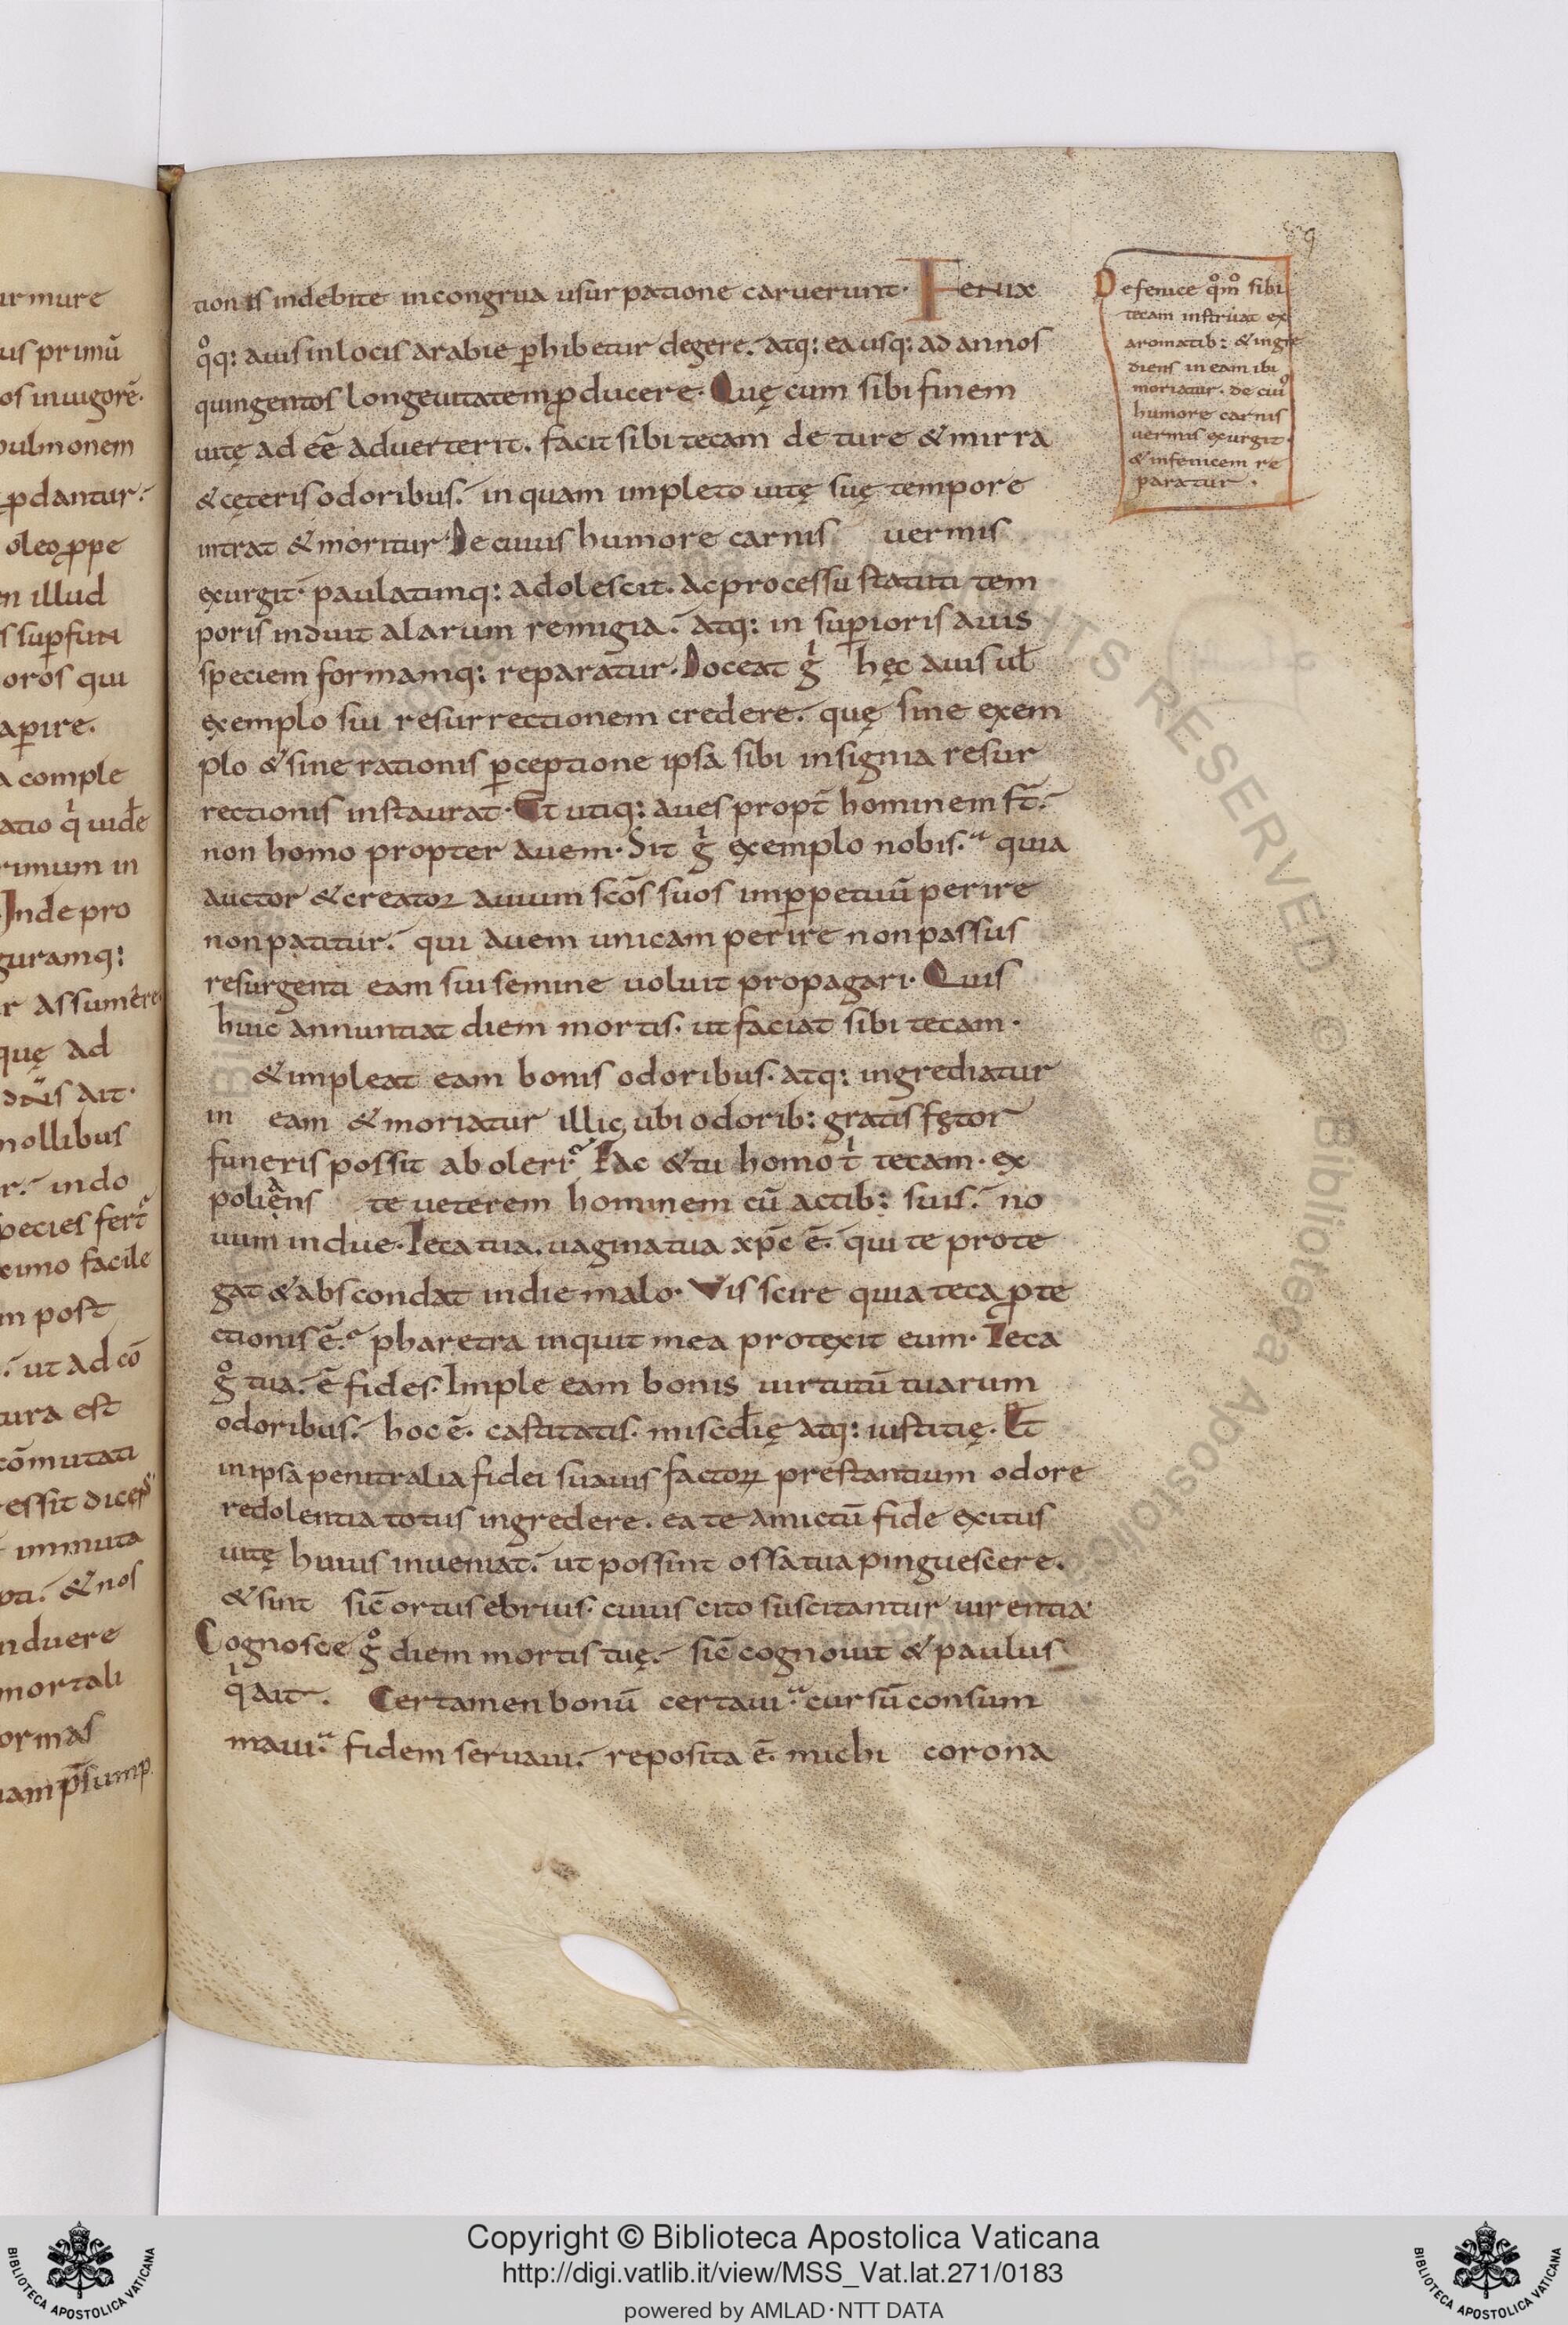 tionis indebite incongrua usurpatione caruerunt. Fenix
qͦq: auis in locis arabie ꝑhibetur degere. atq: ea usq: ad annos
quingentos longeuitatem ꝓducere. Quę cum sibi finem
uitę adeē aduerterit. facit sibi tecam de ture & mirra
& cęteris odoribus. in quam impleto uitę suę tempore
intrat & moritur. De cuius humore carnis uermis
exurgit. paulatimq: adolescit. ac processu statuti tem
poris induit alarum remigia. atq: in suꝑioris auis
speciem formamq: reparatur. Doceat gͥ hęc auis uł
exemplo sui resurrectionem credere. quę sine exem
plo & sine rationis ꝑceptione ipsa sibi insignia resur
rectionis instaurat. Et utiq: aues propt̄ hominem st̄.
non homo propter auem. Sit gͥ exemplo nobis. quia
auctor & creator auium scōs suos in ꝑpetuū perire
non patitur. qui auem unicam perire non passus
resurgenti eam sui semine uoluit propagari. Quis
huic annuntiat diem mortis. ut faciat sibi tecam.
& impleat eam bonis odoribus. atq: ingrediatur
in eam & moriatur illic, ubi odorib: gratis fętor
funeris possit aboleri. Fac & tu homo tͥ tecam. ex
poliens te ueterem hominem cū actib: suis. no
uum indue. Teca tua. uagina tua xp̄c ē. qui te prote
gat & abscondat in die malo. Vis scire quia teca ꝓte
ctionis ē. pharetra inquit mea protexit eum. Teca
gͦ tua. ē fides. Imple eam bonis uirtutū tuarum
odoribus. hoc ē. castitatis. miscd̄ię atq: iustitię. Et
in ipsa penitralia fidei suauis factorꝫ prestantium odore
redolentia totus ingredere. ea te amictū fide exitus
uitę huius inueniat. ut possint ossa tua pinguescere.
& sint sic̄ ortus ebrius. cuius cito suscitantur uirentia
Cognosce gͦ diem mortis tuę. sic̄ cognouit & paulus
qͥ ait. Certamen bonū certaui. cursū consum
maui. fidem seruaui. reposita ē. michi corona
89
De fenice qͦmͦ sibi
tecam instruat ex
aromatib: & ingre
diens in eam ibi
moriatur. de cuiꝰ
humore carnis
uermis exurgit.
& in fenicem re
paratur.
urmure
us primū
os in uigorē.
pulmonem
ꝓdantur.
oleo ꝓppe
en illud
s suꝑfun
oros qui
aꝑire.
a comple
atio qͥ uid̄e
rimum in
Inde pro
guramq:
r assumere
quę ad
dn̄s ait.
mollibus
r. indo
species fert
ximo facile
m post
. ut ad cō
tura est
cōmutati
essit
immuta
. & nos
nduere
mortali
ormas
uam p̄sump
BIBLIOTECA APOSTOLICA VATICANA
Copyright © Biblioteca Apostolica Vaticana
http://digi.vatlib.it/view/MSS_Vat.lat.271/0183
powered by AMLAD·NTT DATA
BIBLIOTECA APOSTOLICA VATICANA